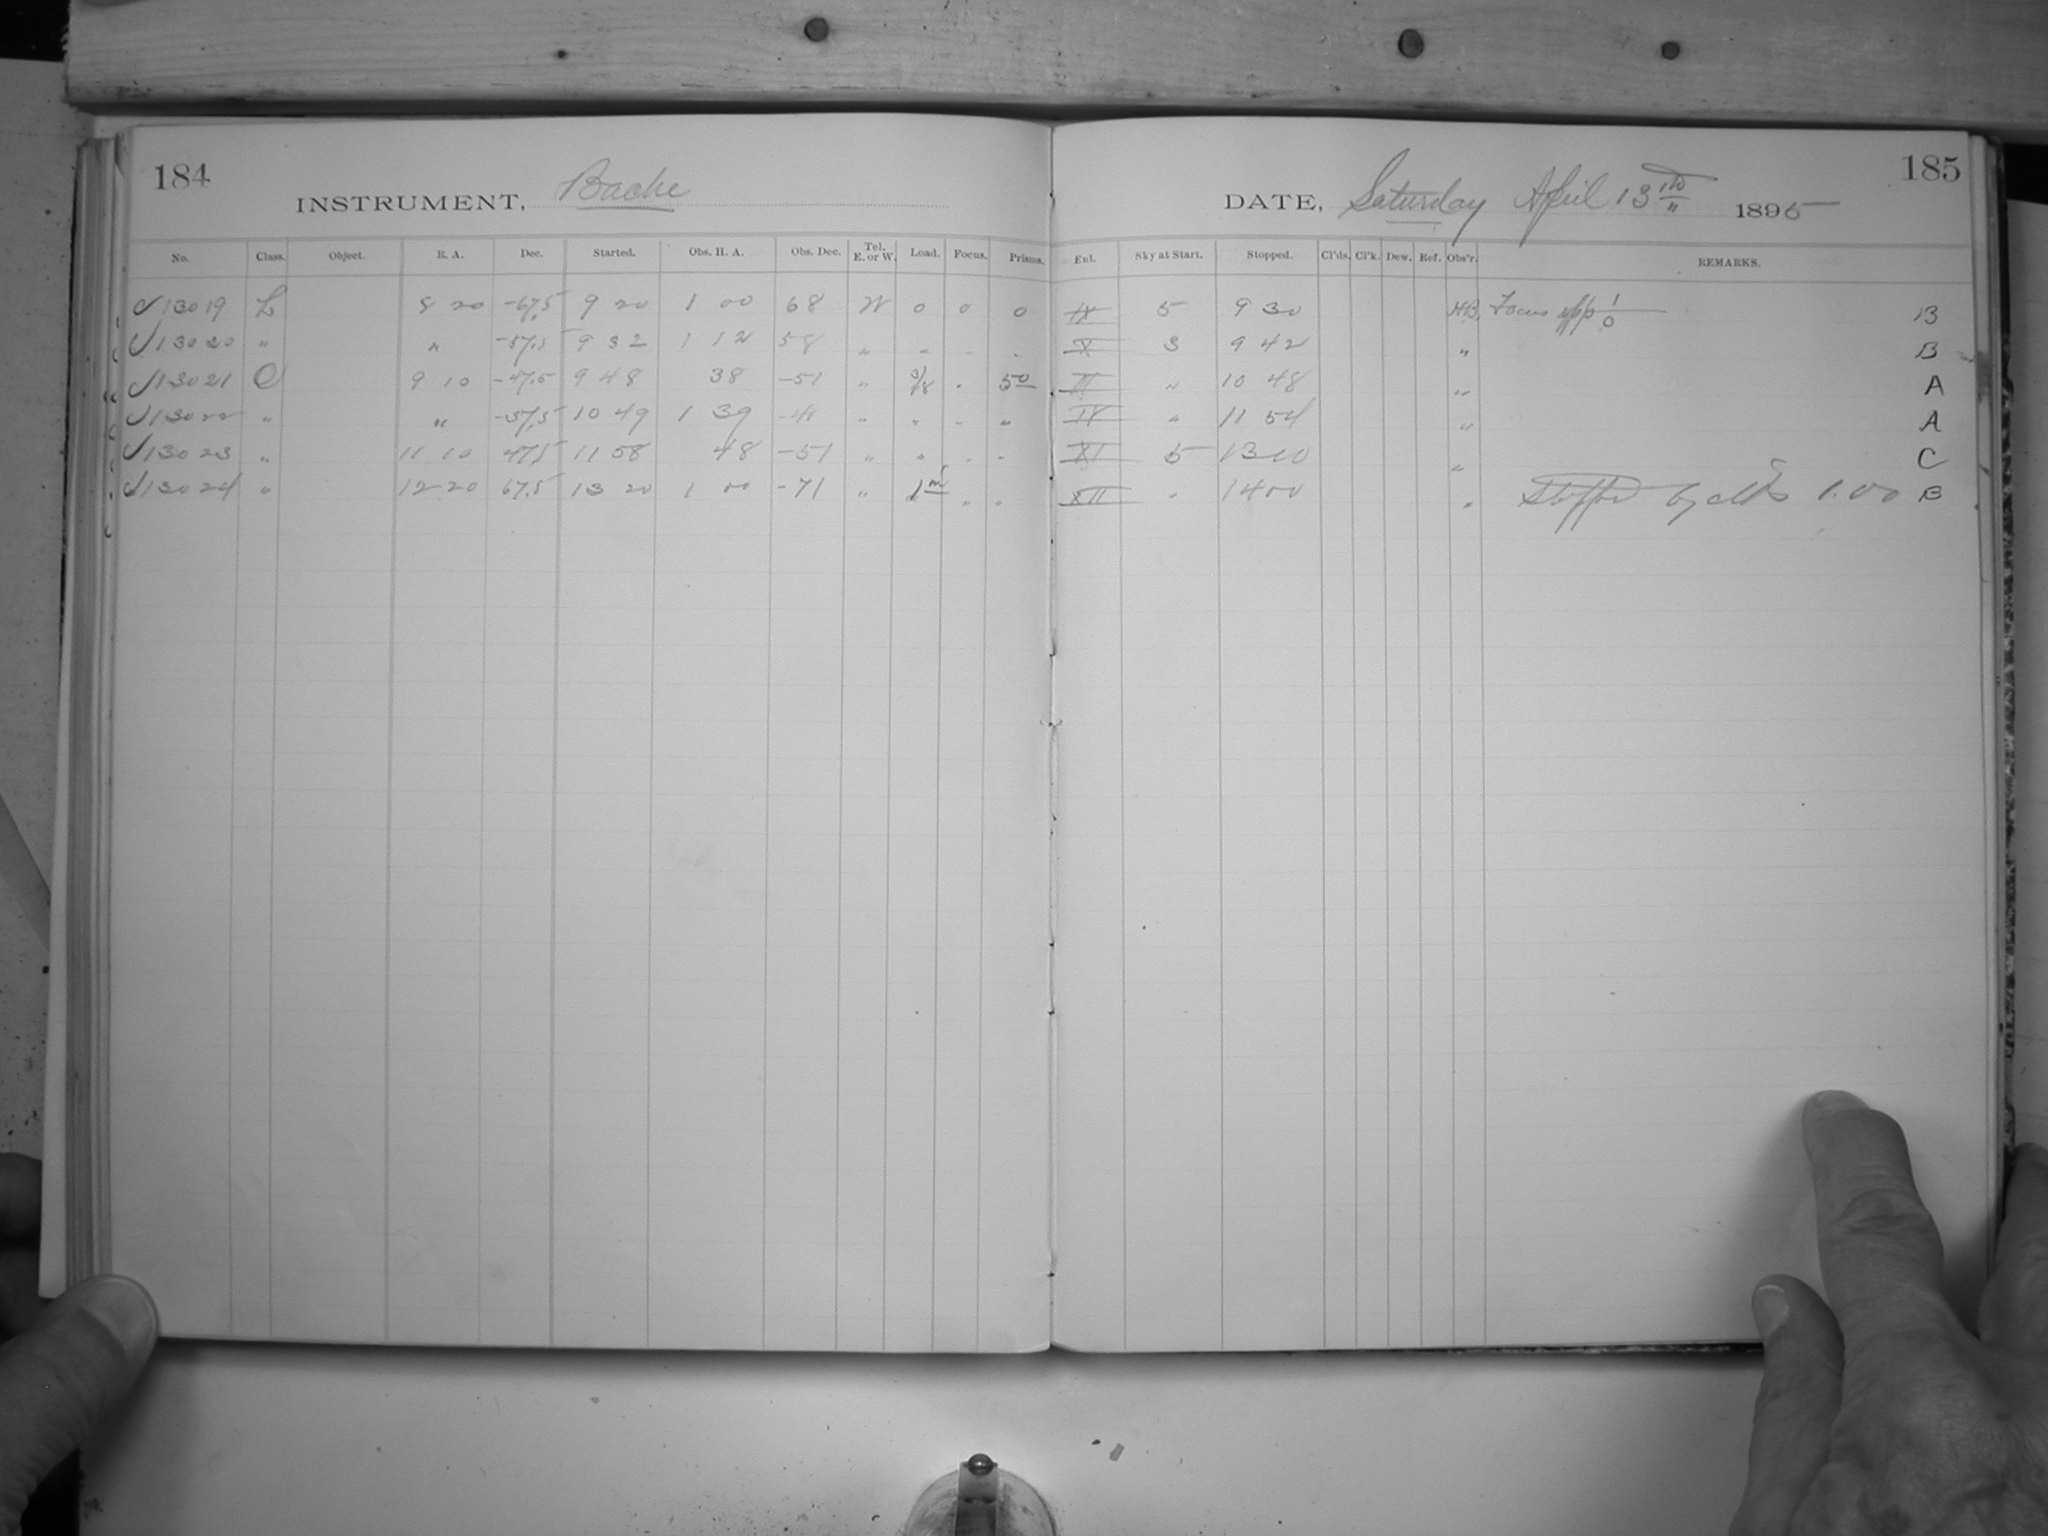 184
INSTRUMENT, Bache
No. Class. Object. R. A. Dec. Started. Obs. H. A. Obs. Dec. Tel. E. or W. Load. Focus. Prisms.
13019 L 8 20 -67.5 9 20 1 00 68 W 0 0 0
13020 " " -57.5 9 32 1 12 58 " " " "
13021 C 9 10 -47.5 9 48 38 -51 " 3/18 " 50
13022 " " -37.5 10 49 1 39 -41 " " " "
13023 " 11 10 47.5 11 58 48 -51 " " " "
13024 " 12 20 67.5 13 20 1 00 -71 " 1 " "
185
DATE, Saturday April 13th 1895
Enl. Sky at Start. Stopped. Cl'ds. Cl'k. Dew. Ref. Obs'r. REMARKS.
IX 5 9 30 HB. Focus 1 0 B
X 3 9 42 " B
III " 10 48 " A
IV " 11 54 " A
XI 5 13 10 " C
XII " 14 00 " Stopped by clds 1.00 B